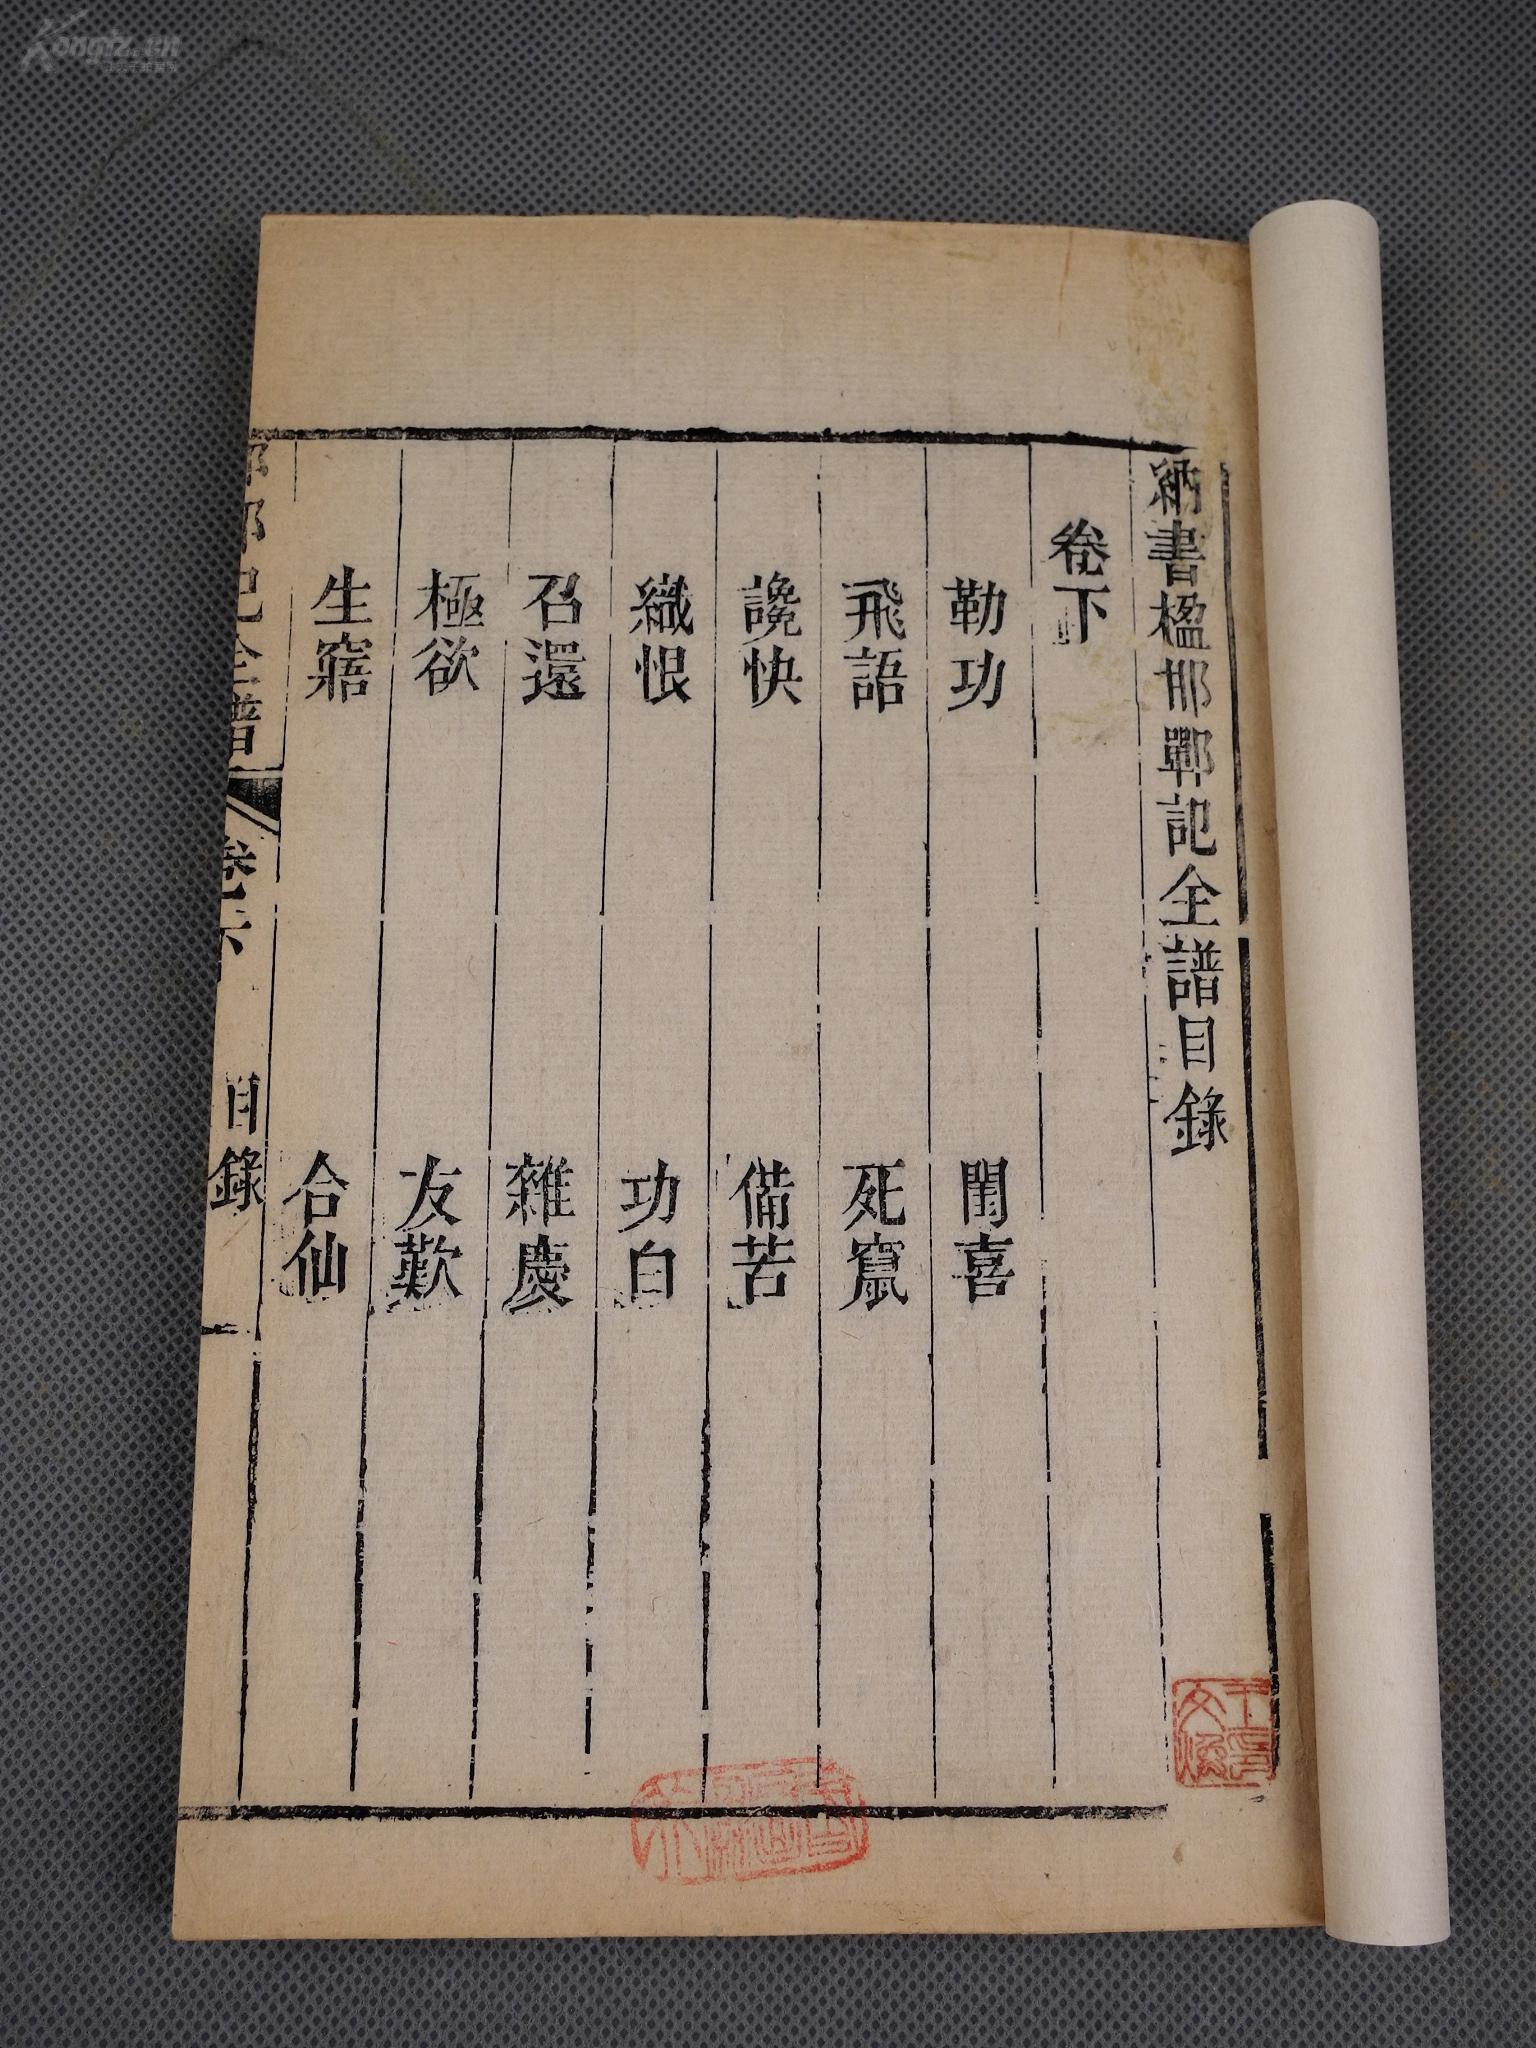 納書楹邯鄲記全譜目錄
卷下
勒功 閨喜
飛語 死竄
讒快 備苦
織恨 功白
召還 雜慶
極欲 友歎
生寤 合仙
邯鄲記全譜 卷下 目錄 一
Kongfz.cn